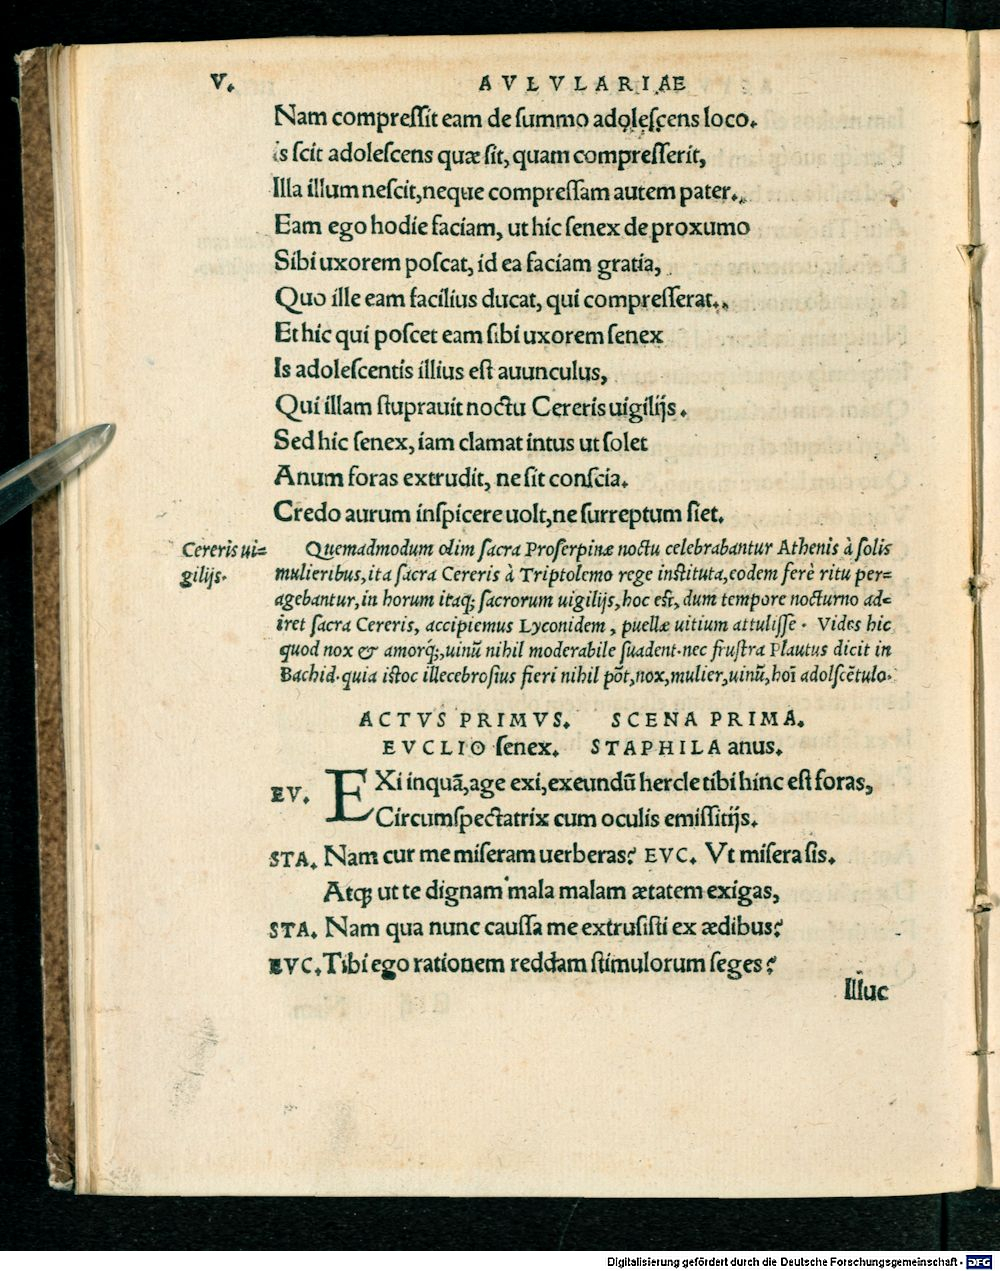 V.
AVLVLARIAE
Nam compreſſit eam de ſummo adoleſcens loco.
is ſcit adoleſcens quæ ſit, quam compreſſerit,
Illa illum neſcit, neque compreſſam autem pater.
Eam ego hodie faciam, ut hic ſenex de proxumo
Sibi uxorem poſcat, id ea faciam gratia,
Quo ille eam facilius ducat, qui compreſſerat.
Et hic qui poſcet eam ſibi uxorem ſenex
Is adoleſcentis illius eſt auunculus,
Qui illam ſtuprauit noctu Cereris uigilijs.
Sed hic ſenex, iam clamat intus ut ſolet
Anum foras extrudit, ne ſit conſcia.
Credo aurum inſpicere uolt, ne ſurreptum ſiet.
Cereris ui=
gilijs.
Quemadmodum olim ſacra Proſerpinæ noctu celebrabantur Athenis à ſolis
mulieribus, ita ſacra Cereris à Triptolemo rege inſtituta, eodem ferè ritu per=
agebantur, in horum itaq; ſacrorum uigilijs, hoc eſt, dum tempore nocturno ad=
iret ſacra Cereris, accipiemus Lyconidem, puellæ uitium attuliſſe. Vides hic
quod nox & amorq́;, uinũ nihil moderabile ſuadent. nec fruſtra Plautus dicit in
Bachid. quia iſtoc illecebroſius fieri nihil põt, nox, mulier, uinũ, hoĩ adolſcẽtulo.
ACTVS PRIMVS. SCENA PRIMA.
EVCLIO ſenex. STAPHILA anus.
EV. EXi inquã, age exi, exeundũ hercle tibi hinc eſt foras,
Circumſpectatrix cum oculis emiſſitijs.
STA. Nam cur me miſeram uerberas? EVC. Vt miſera ſis.
Atq; ut te dignam mala malam ætatem exigas,
STA. Nam qua nunc cauſſa me extruſiſti ex ædibus?
EVC. Tibi ego rationem reddam ſtimulorum ſeges?
Illuc
Digitalisierung gefördert durch die Deutsche Forschungsgemeinschaft - DFG